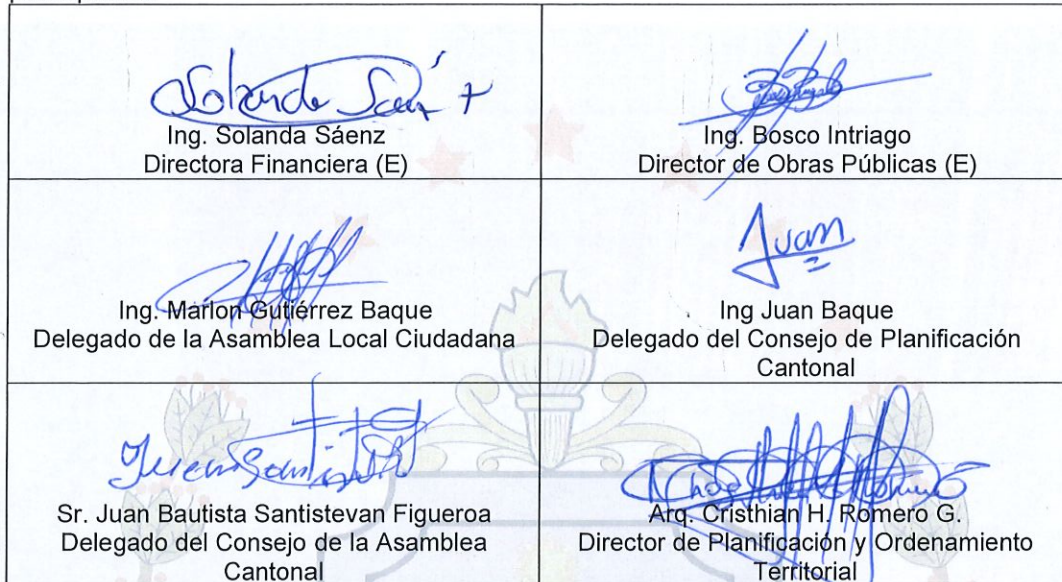 Solanda Sáenz
Ing. Solanda Sáenz
Directora Financiera (E)
Ing. Bosco Intriago
Director de Obras Públicas (E)
Ing. Marlon Gutiérrez Baque
Delegado de la Asamblea Local Ciudadana
Juan
Ing Juan Baque
Delegado del Consejo de Planificación
Cantonal
Sr. Juan Bautista Santistevan Figueroa
Delegado del Consejo de la Asamblea
Cantonal
Arq. Cristhian H. Romero G.
Director de Planificación y Ordenamiento
Territorial